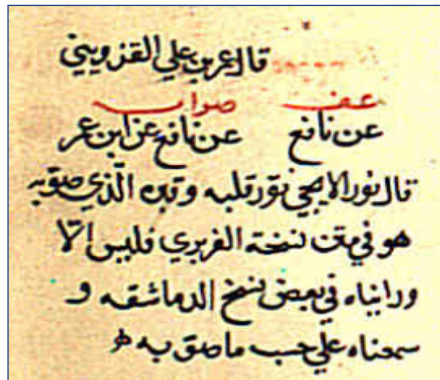 قال عمر بن علي القزويني
عف صواب
عن نافع عن نافع عن ابن عمر
قال نور الايجي نور قلبه وقبره الذي صوبه
هو في متن نسخة الفربري فليس الا
ورايناه في بعض نسخ الدماشقه و
سمعناه علي حسب ما صوبه